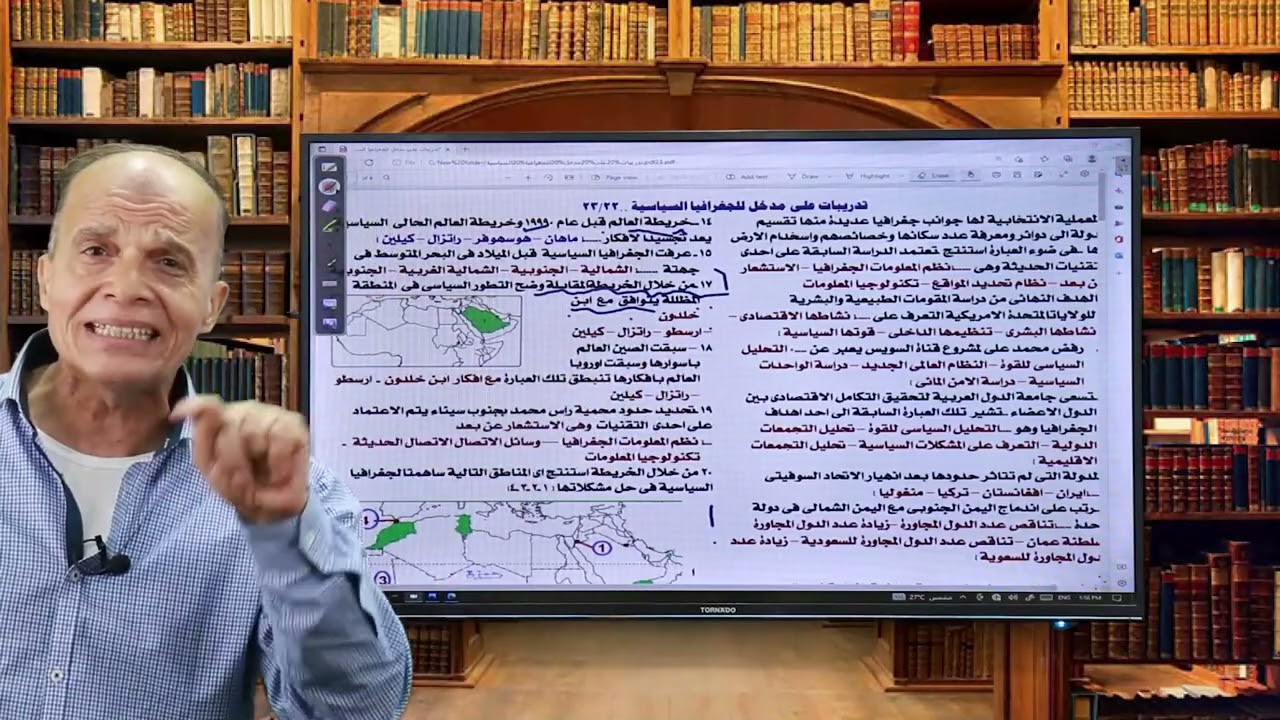 تدريبات على مدخل للجغرافيا السياسية ..٢٣/٢٢
لعملية الانتخابية لها جوانب جغرافيا عديدة منها تقسيم
دولة الى دوائر ومعرفة عدد سكانها وخصائصهم واسخدام الارض
بها ـ فى ضوء العبارة استنتج تعتمد الدراسة السابقة على احدى
تقنيات الحديثة وهى ....نظم المعلومات الجغرافيا – الاستشعار
ن بعد – نظام تحديد المواقع – تكنولوجيا المعلومات
الهدف النهائى من دراسة المقومات الطبيعية والبشرية
للولايات المتحدة الامريكية التعرف على .... نشاطها الاقتصادى –
نشاطها البشرى – تنظيمها الداخلى – قوتها السياسية :
رفض محمد على لمشروع قناة السويس يعبر عن ..... التحليل
السياسى للقوة – النظام العالمى الجديد – دراسة الواحدات
السياسية – دراسة الامن المائى :
تسعى جامعة الدول العربية لتحقيق التكامل الاقتصادى بين
الدول الاعضاء ـ تشير تلك العبارة السابقة الى احد اهداف
الجغرافيا وهو .... التحليل السياسى للقوة – تحليل التجمعات
الدولية – التعرف على المشكلات السياسية – تحليل التجمعات
الاقليمية :
لدولة التى لم تتاثر حدودها بعد انهيار الاتحاد السوفيتى
....ايران – افغانستان – تركيا – منغوليا :
ترتب على اندماج اليمن الجنوبى مع اليمن الشمالى فى دولة
حدة ....تناقص عدد الدول المجاورة – زيادة عدد الدول المجاورة
سلطنة عمان – تناقص عدد الدول المجاورة للسعودية – زيادة عدد
دول المجاورة للسعوية :
١٤ـ خريطة العالم قبل عام ١٩٩٠ وخريطة العالم الحالى السياسى
يعد تجسيدا لافكار..... ماهان – هوسهوفر – راتزال – كيلين :
١٥ـ عرفت الجغرافيا السياسية قبل الميلاد فى البحر المتوسط فى
جهتة ..... الشمالية – الجنوبية – الشمالية الغربية – الجنوبية
١٧ من خلال الخريطة المقابلة وضح التطور السياسى فى المنطقة
المظللة يتوافق مع ابن
خلدون –
ارسطو – راتزال – كيلين
١٨ – سبقت الصين العالم
باسوارها وسبقت اوروبا
العالم بافكارها تنبطق تلك العبارة مع افكار ابن خلدون – ارسطو
– راتزال – كيلين
١٩ تحديد حدود محمية راس محمد بجنوب سيناء يتم الاعتماد
على احدى التقنيات وهى الاستشعار عن بعد
ـ نظم المعلومات الجغرافيا – وسائل الاتصال الاتصال الحديثة –
تكنولوجيا المعلومات
٢٠ من خلال الخريطة استنتج اى المناطق التالية ساهمتا لجغرافيا
السياسية فى حل مشكلاتها : ١-٢-٣-٤)
1
3
Page view
Add text
Draw
Highlight
Erase
27°C
مشمس
ENG
1:56 PM
TORNADO